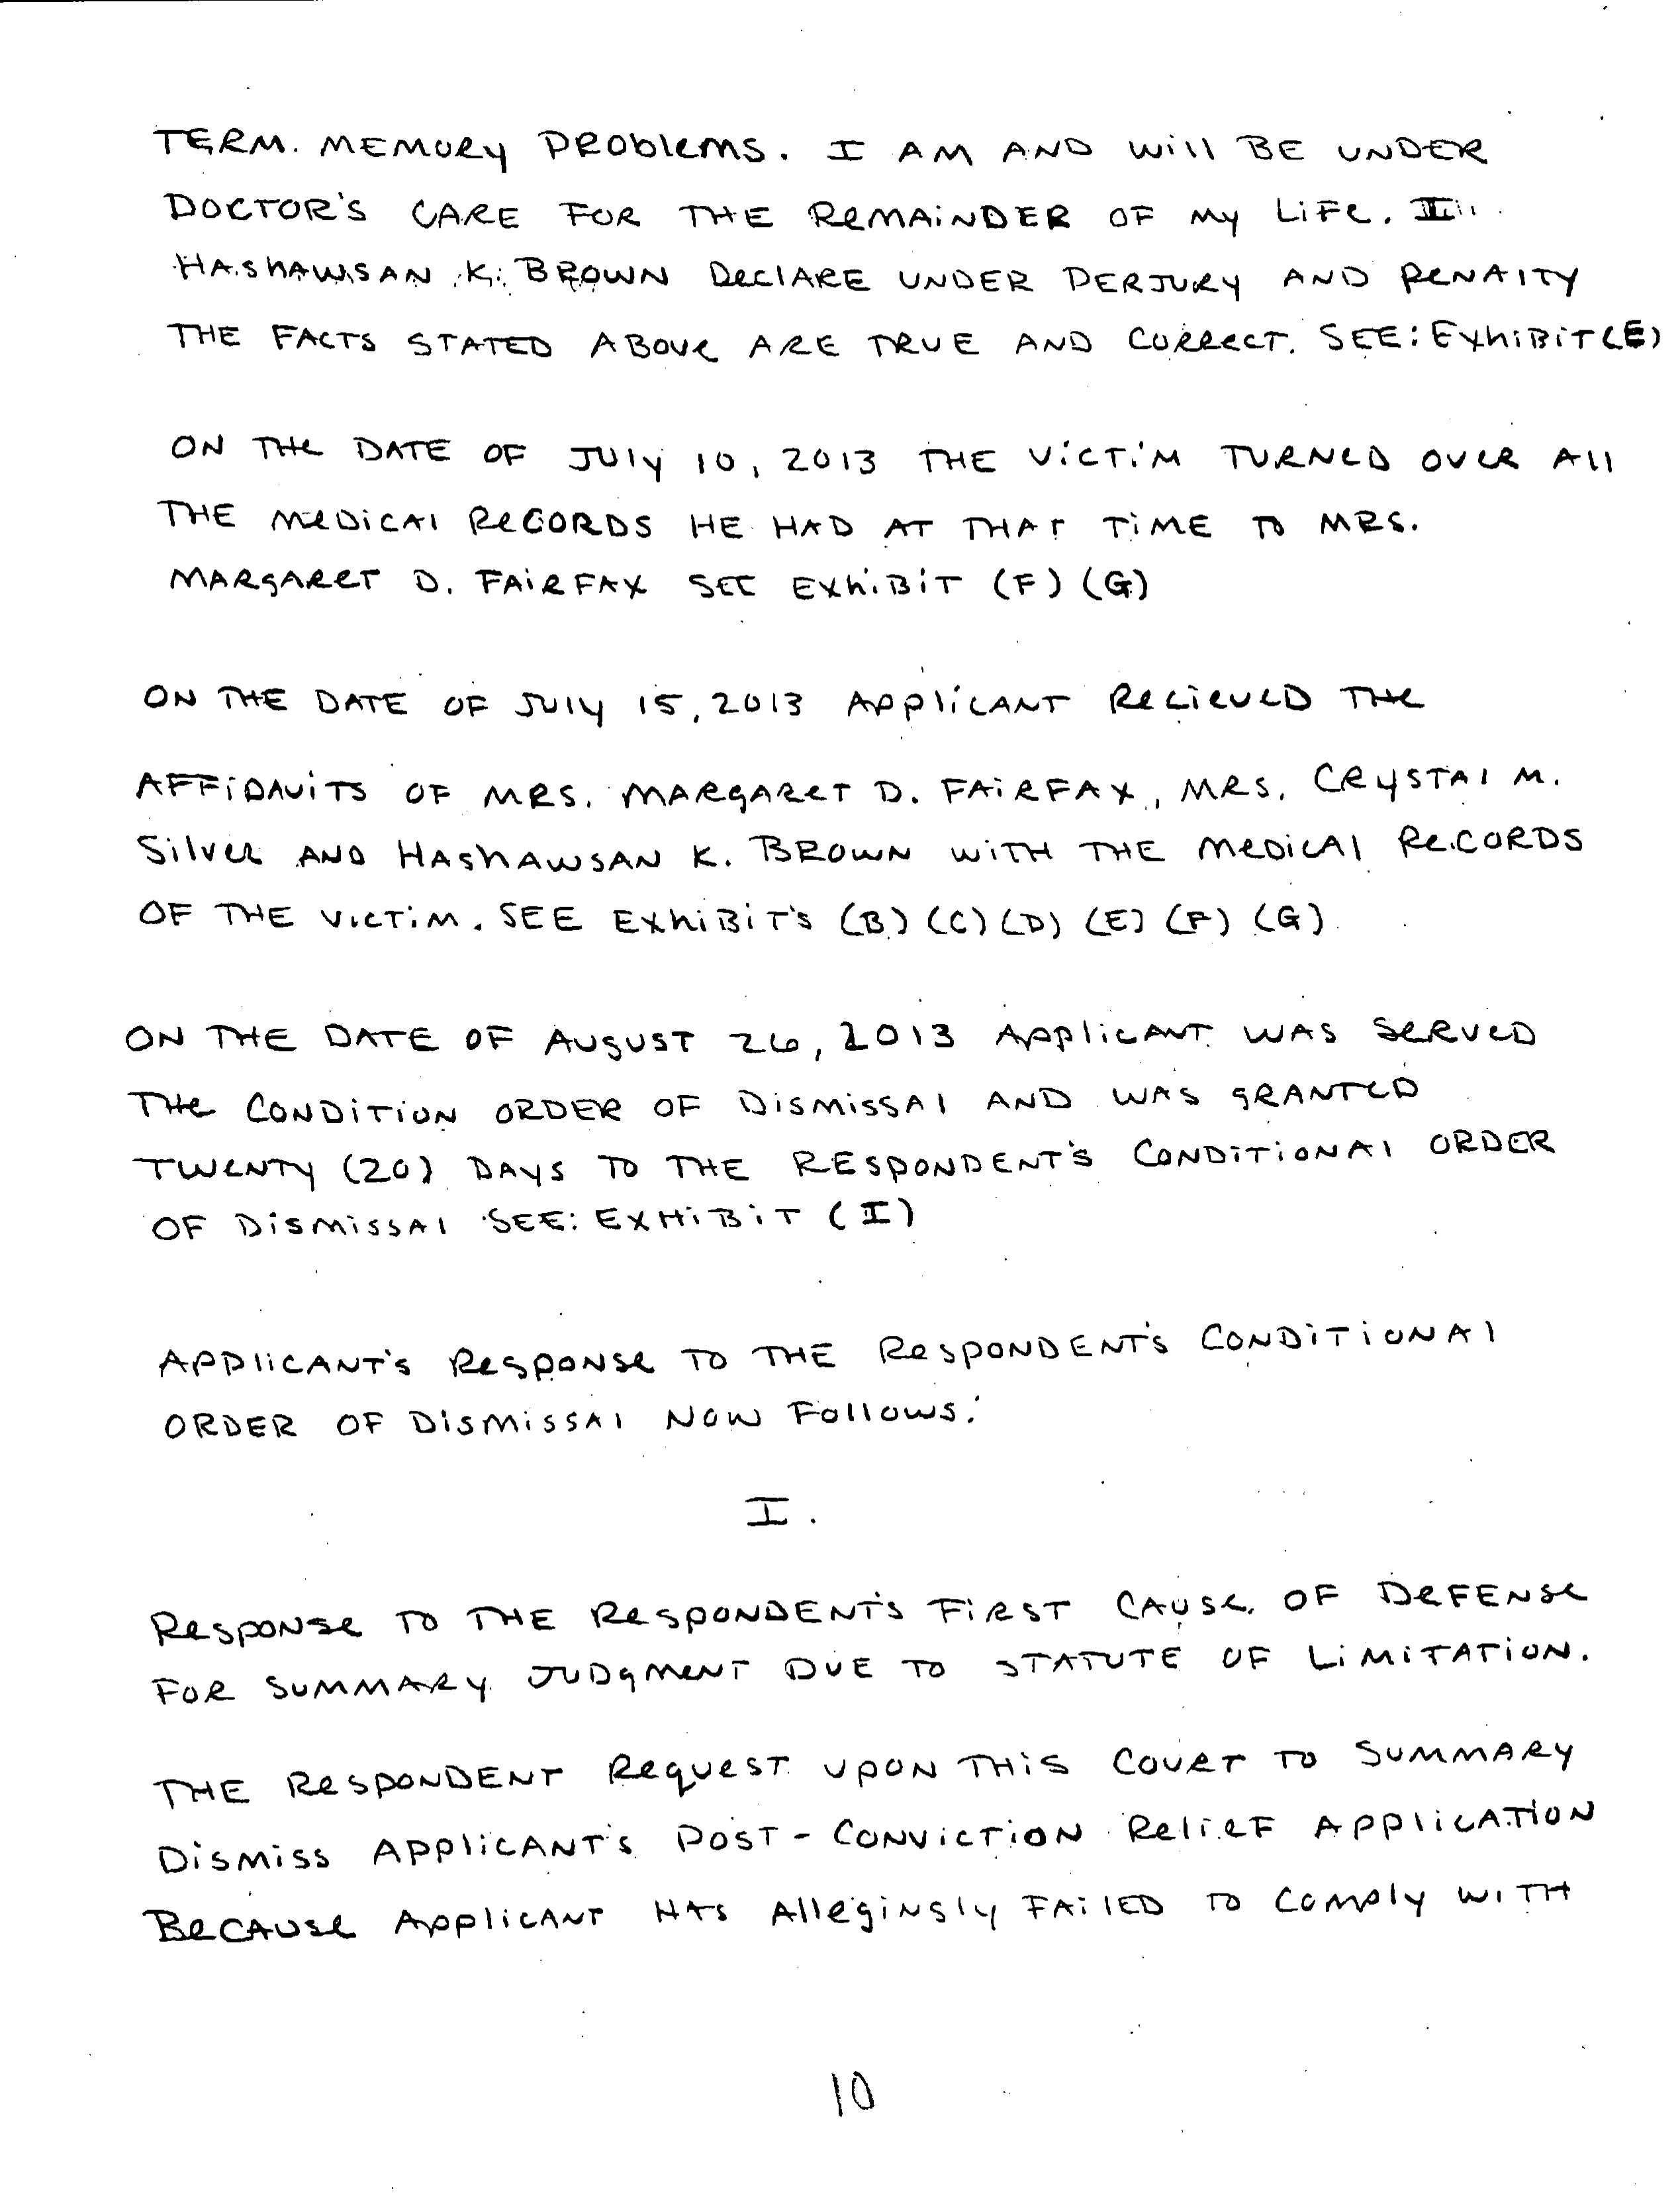 TERM. MEMORY PROBlEMS. I AM AND Will BE UNDER
DOCTOR'S CARE FOR THE REMAiNDER OF My LiFe. I
HASHAWSAN K. BROWN DeclARE UNDER PERJURY AND PENAlTY
THE FACTS STATED ABOVE ARE TRUE AND CORRECT. SEE: ExhiBiT (E)
ON THE DATE OF JUly 10, 2013 THE VicTiM TURNED OVER All
THE MEDiCAl RECORDS HE HAD AT THAT TiME TO MRS.
MARgARET D. FAiRFAX SEE ExhiBiT (F) (G)
ON THE DATE OF JUly 15, 2013 APPliCANT RECIEVED THE
AFFiDAViTS OF MRS. MARgARET D. FAiRFAX, MRS. CRYSTAl M.
SilVER AND HAShAWSAN K. BROWN WiTH THE MEDiCAl RECORDS
OF THE VicTiM. SEE ExhiBiT's (B) (C) (D) (E) (F) (G)
ON THE DATE OF AUgUST 26, 2013 APPliCANT WAS SERVED
THE CONDiTiON ORDER OF DiSMiSSAl AND WAS gRANTED
TWENTY (20) DAYS TO THE RESPONDENT'S CONDiTiONAl ORDER
OF DiSMiSSAl SEE: EXHiBiT (I)
APPliCANT'S RESPONSE TO THE RESPONDENT'S CONDiTiONAl
ORDER OF DiSMiSSAl NOW Follows:
I.
RESPONSE TO THE RESPONDENT'S FiRST CAUSE OF DEFENSE
FOR SUMMARY JUDgMENT DUE TO STATUTE OF LiMiTATiON.
THE RESPONDENT REqUEST UPON THiS COURT TO SUMMARY
DiSMiSS APPliCANT'S POST-CONViCTiON REliEF APPliCATiON
BECAUSE APPliCANT HAS AllEgiNgly FAilED TO COMPly WiTH
10